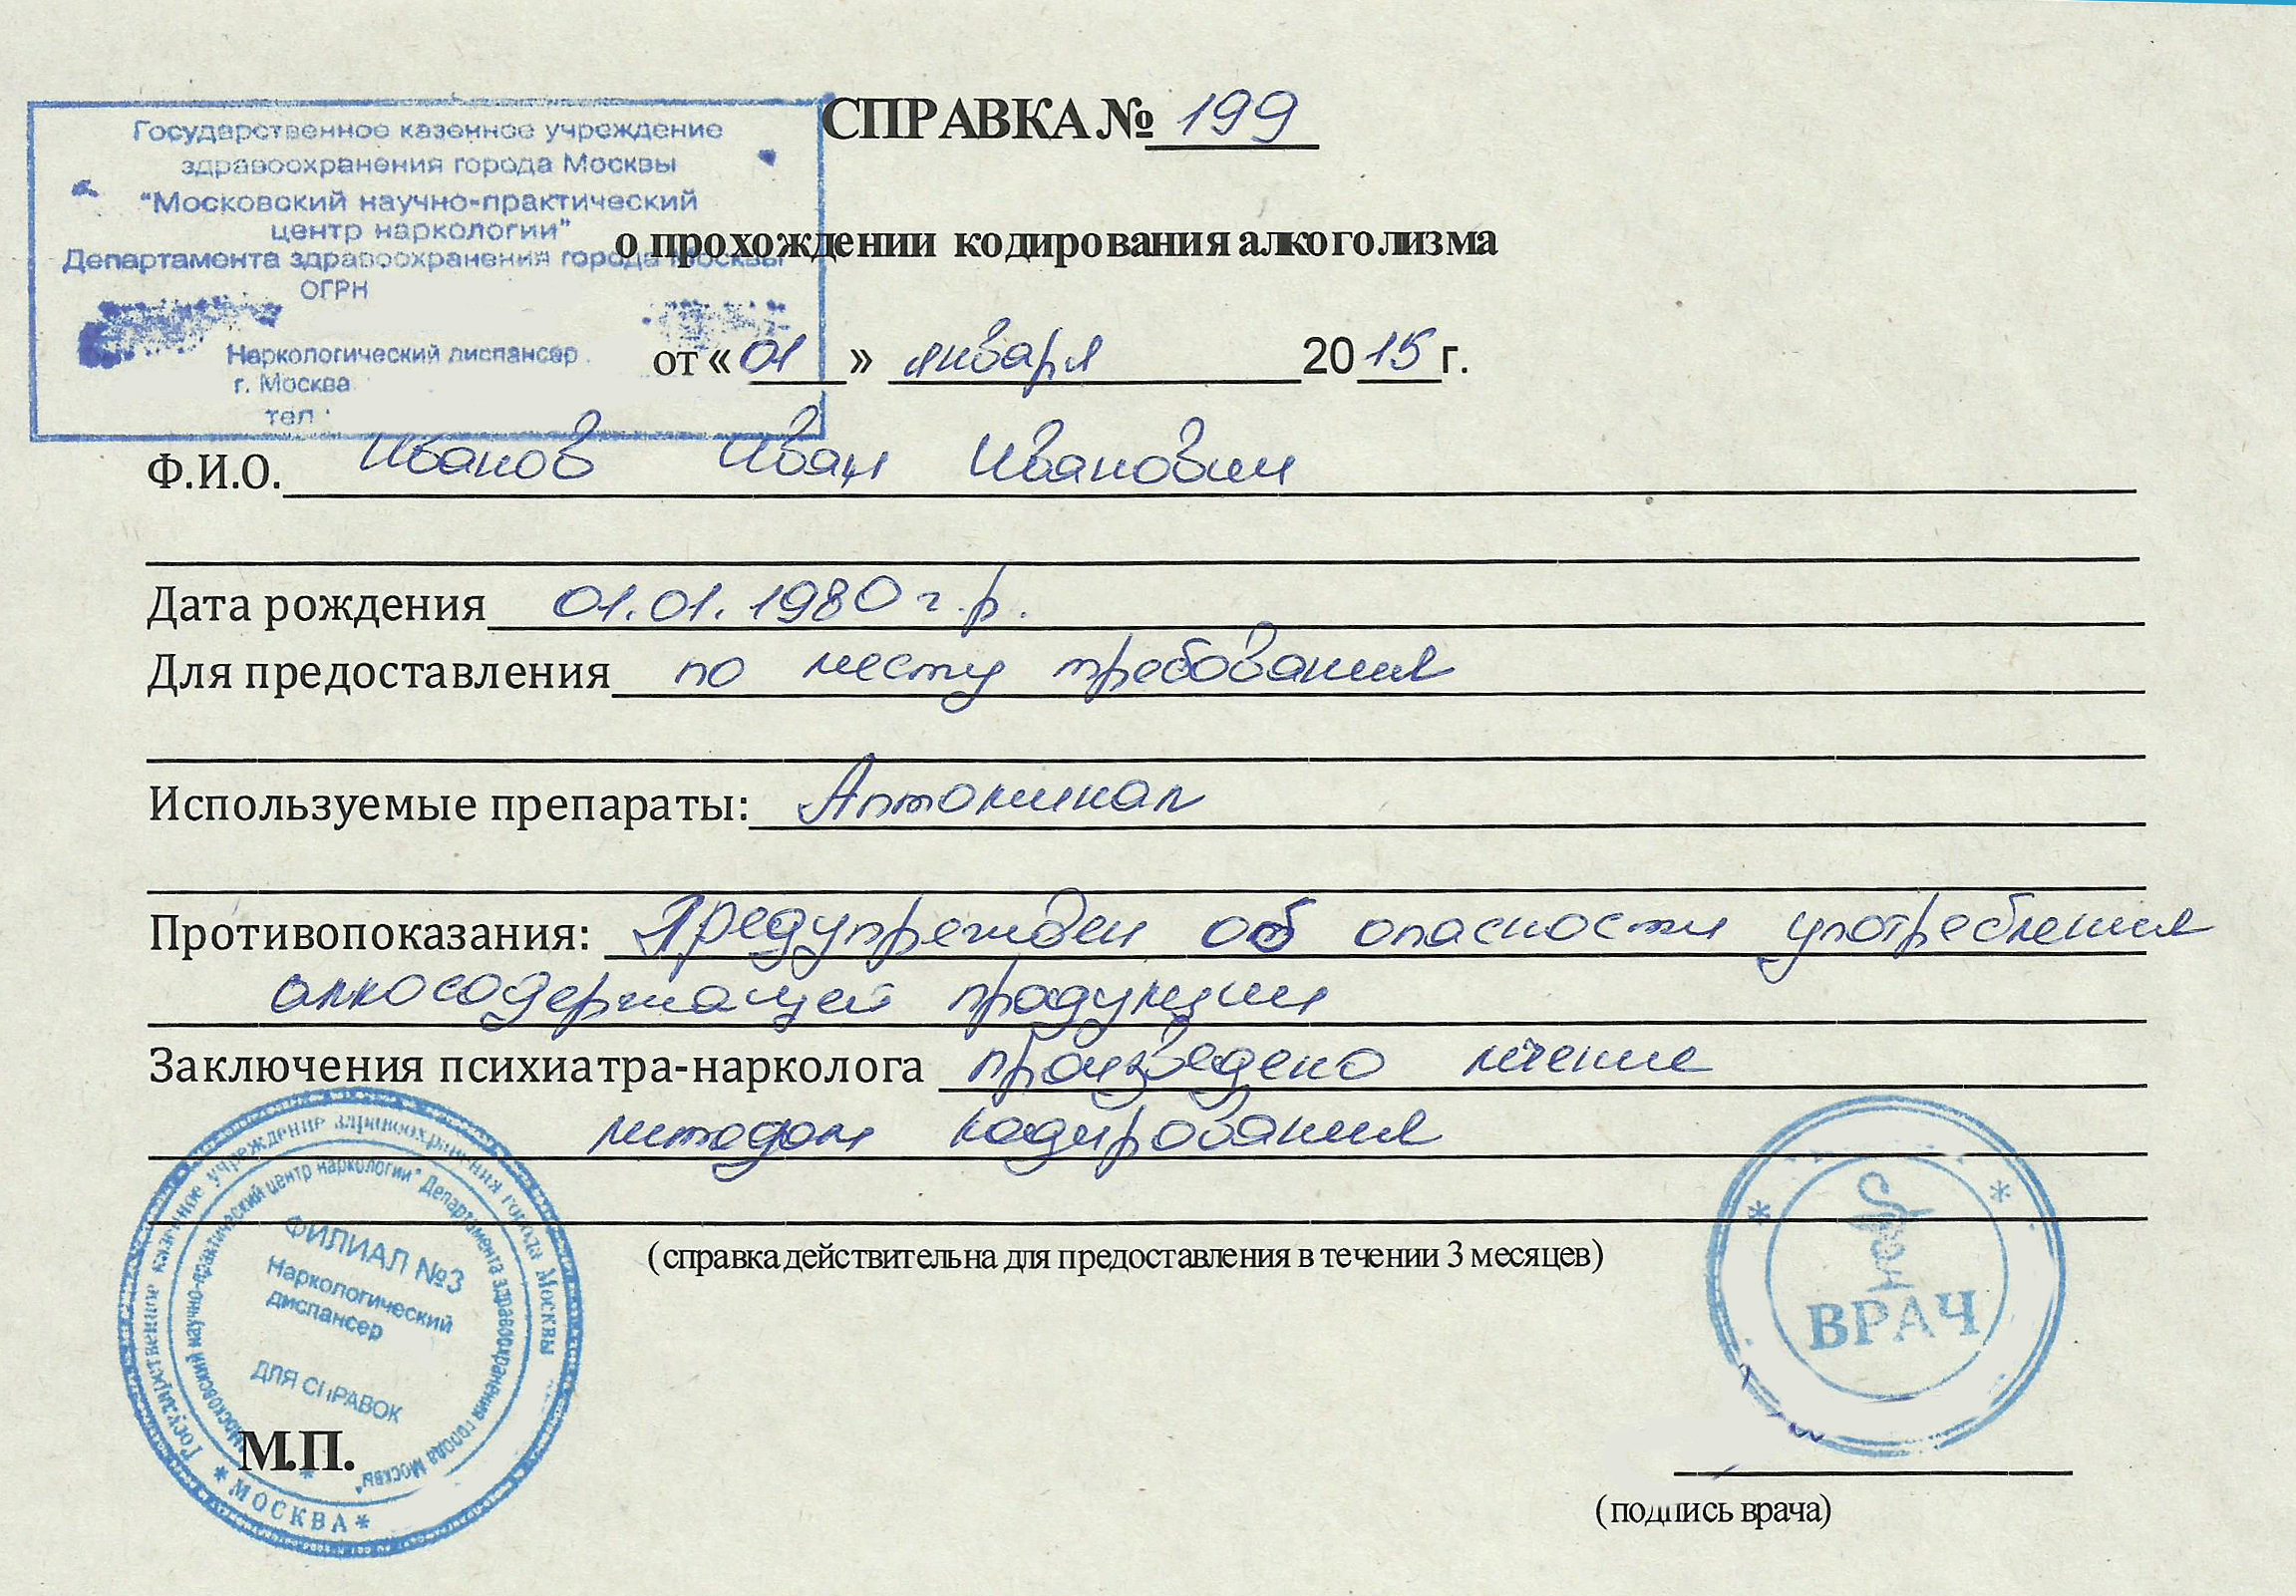 Государственное казенное учреждение
здравоохранения города Москвы
"Московский научно-практический
центр наркологии"
Департамента здравоохранения города Москвы
ОГРН
Наркологический диспансер
г. Москва
тел
СПРАВКА № 199
о прохождении кодирования алкоголизма
от « 01 » января 2015 г.
Ф.И.О. Иванов Иван Иванович
Дата рождения 01.01.1980 г.р.
Для предоставления по месту требования
Используемые препараты: Аптоминал
Противопоказания: Предупрежден об опасности употребления
алкосодержащей продукции
Заключения психиатра-нарколога произведено лечение
методом кодирования
(справка действительна для предоставления в течении 3 месяцев)
Государственное казенное учреждение здравоохранения города Москвы
"Московский научно-практический центр наркологии" Департамента здравоохранения города Москвы"
ФИЛИАЛ №3
Наркологический
диспансер
ДЛЯ СПРАВОК
* МОСКВА *
М.П.
ВРАЧ
(подпись врача)